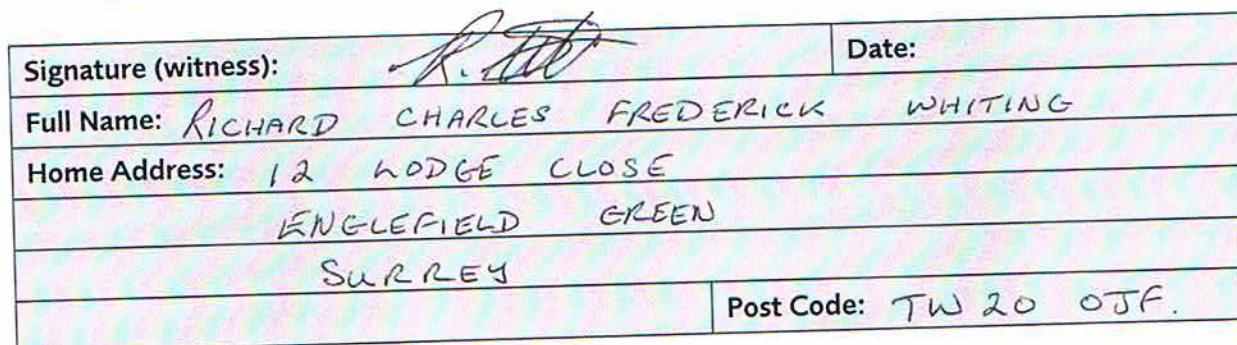 Signature (witness): Date:
Full Name: RICHARD CHARLES FREDERICK WHITING
Home Address: 12 LODGE CLOSE
ENGLEFIELD GREEN
SURREY
Post Code: TW20 0JF.